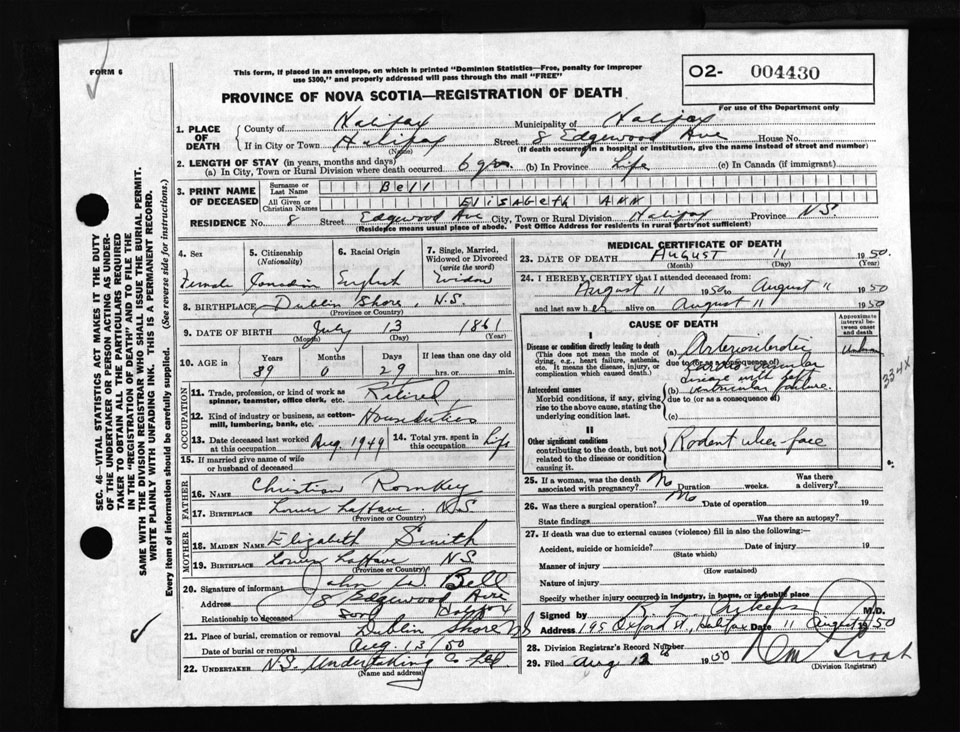 FORM 6
This form, if placed in an envelope, on which is printed "Dominion Statistics—Free, penalty for improper
use $300," and properly addressed will pass through the mail "FREE"
O2- 004430
PROVINCE OF NOVA SCOTIA—REGISTRATION OF DEATH
For use of the Department only
1. PLACE OF DEATH
County of Halifax Municipality of Halifax
If in City or Town Halifax Street 8 Edgewood Ave House No.
(Name) (If death occurred in a hospital or institution, give the name instead of street and number)
2. LENGTH OF STAY (in years, months and days)
(a) In City, Town or Rural Division where death occurred 6 yrs. (b) In Province Life (c) In Canada (if immigrant)
3. PRINT NAME OF DECEASED
Surname or Last Name Bell
All Given or Christian Names ELISABETH ANN
RESIDENCE No. 8 Street Edgewood Ave City, Town or Rural Division Halifax Province N.S.
(Residence means usual place of abode. Post Office Address for residents in rural parts not sufficient)
SEC. 46—VITAL STATISTICS ACT MAKES IT THE DUTY
OF THE UNDERTAKER OR PERSON ACTING AS UNDER-
TAKER TO OBTAIN ALL THE PARTICULARS REQUIRED
IN THE "REGISTRATION OF DEATH" AND TO FILE THE
SAME WITH THE DIVISION REGISTRAR WHO SHALL ISSUE THE BURIAL PERMIT.
WRITE PLAINLY WITH UNFADING INK. THIS IS A PERMANENT RECORD.
Every item of information should be carefully supplied. (See reverse side for instructions.)
4. Sex
Female
5. Citizenship
(Nationality)
Canadian
6. Racial Origin
English
7. Single, Married,
Widowed or Divorced
(write the word)
Widow
8. BIRTHPLACE Dublin Shore, N.S.
(Province or Country)
9. DATE OF BIRTH July 13 1861
(Month) (Day) (Year)
10. AGE in Years Months Days If less than one day old
89 0 29 hrs. or min.
OCCUPATION
11. Trade, profession, or kind of work as
spinner, teamster, office clerk, etc. Retired
12. Kind of industry or business, as cotton-
mill, lumbering, bank, etc. Houseduties
13. Date deceased last worked
at this occupation Aug. 1949
14. Total yrs. spent in
this occupation Life
15. If married give name of wife
or husband of deceased
FATHER
16. NAME Christian Romkey
17. BIRTHPLACE Lower LaHave N.S.
(Province or Country)
MOTHER
18. MAIDEN NAME Elizabeth Smith
19. BIRTHPLACE Lower LaHave N.S.
(Province or Country)
20. Signature of informant John W. Bell
Address 8 Edgewood Ave
Relationship to deceased Son Halifax
21. Place of burial, cremation or removal Dublin Shore N.S.
Date of burial or removal Aug. 13/50
22. UNDERTAKER N.S. Undertaking Co Ltd
(Name and address)
MEDICAL CERTIFICATE OF DEATH
23. DATE OF DEATH August 11 1950
(Month) (Day) (Year)
24. I HEREBY CERTIFY that I attended deceased from
August 11 1950 to August 11 1950
and last saw her alive on August 11 1950
CAUSE OF DEATH
Approximate
interval be-
tween onset
and death
I
Disease or condition directly leading to death
(This does not mean the mode of
dying, e.g., heart failure, asthenia,
etc. It means the disease, injury, or
complication which caused death.)
(a) Arteriosclerotic
due to (or as a consequence of)
Unknown
disease with
(b) ventricular failure
due to (or as a consequence of)
(c)
334X
Antecedent causes
Morbid conditions, if any, giving
rise to the above cause, stating the
underlying condition last.
II
Other significant conditions
contributing to the death, but not
related to the disease or condition
causing it.
Rodent ulcer-face
25. If a woman, was the death
associated with pregnancy? No Duration weeks. Was there
a delivery?
26. Was there a surgical operation? No Date of operation 19
State findings Was there an autopsy?
27. If death was due to external causes (violence) fill in also the following:—
Accident, suicide or homicide? Date of injury 19
(State which)
Manner of injury
(How sustained)
Nature of injury
Specify whether injury occurred in industry, in home, or in public place
Signed by M.D.
Address 195 Oxford St., Halifax Date 11 August 1950
28. Division Registrar's Record Number
29. Filed Aug 12th 1950
(Division Registrar)